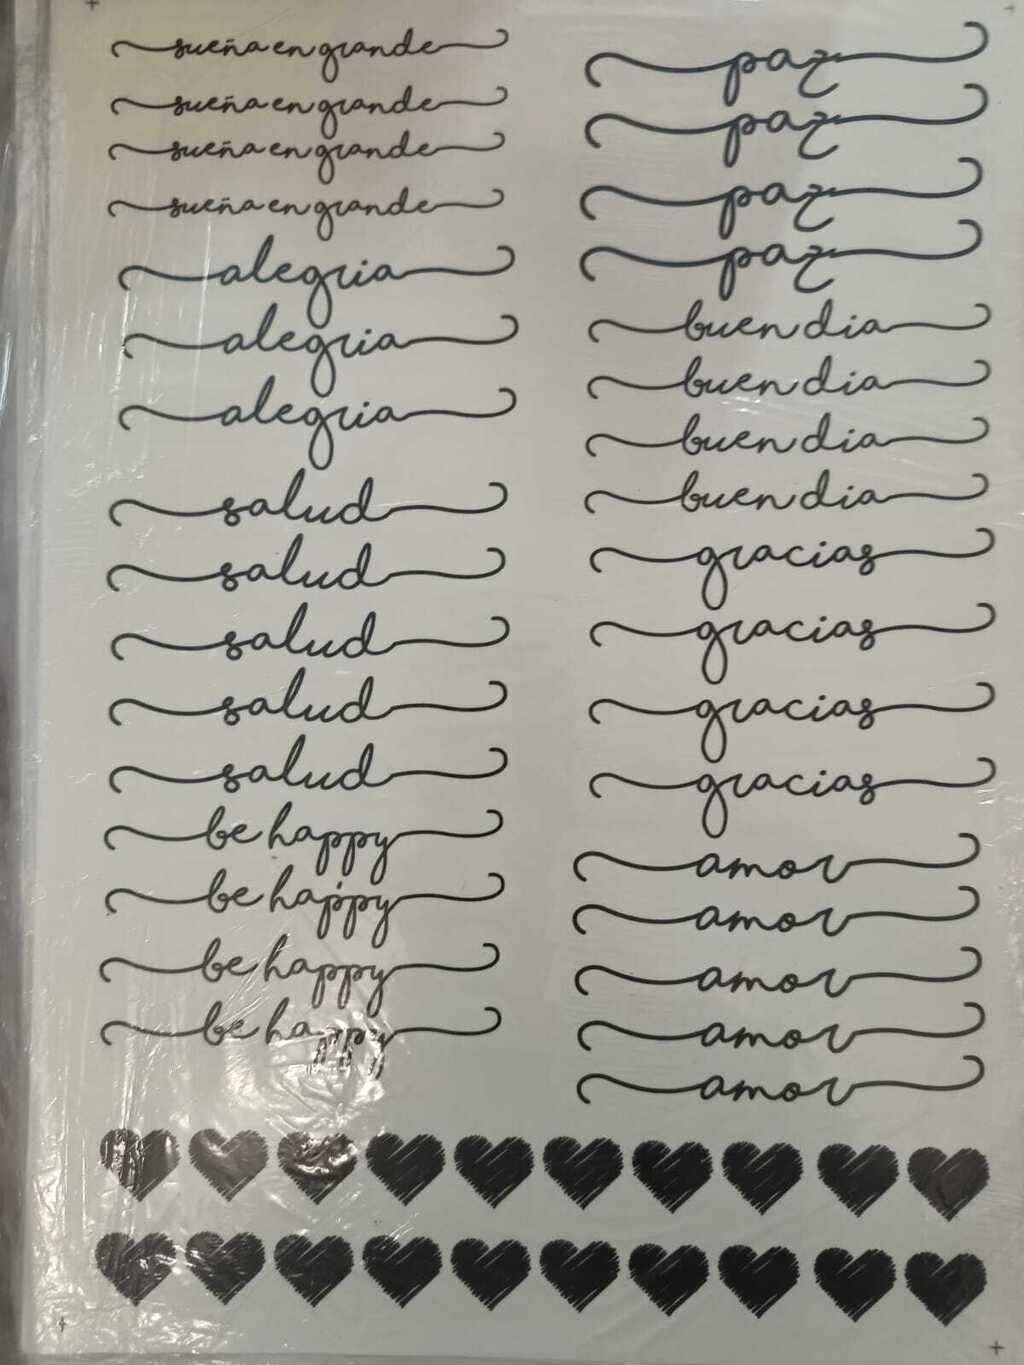 sueña en grande
sueña en grande
sueña en grande
sueña en grande
alegria
alegria
alegria
salud
salud
salud
salud
salud
be happy
be happy
be happy
be happy
paz
paz
paz
paz
buen dia
buen dia
buen dia
buen dia
gracias
gracias
gracias
gracias
amor
amor
amor
amor
amor